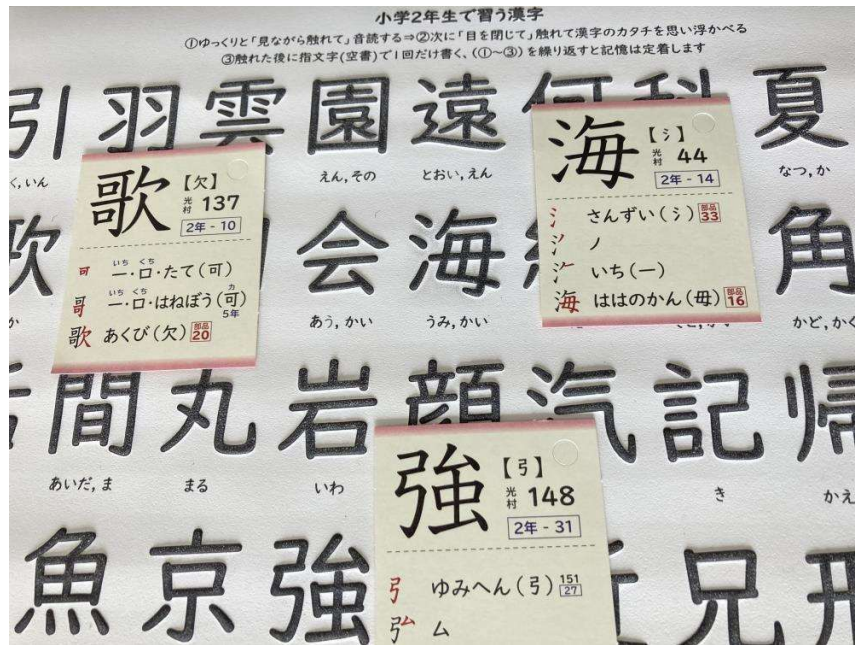 小学2年生で習う漢字
①ゆっくりと「見ながら触れて」音読する⇒②次に「目を閉じて」触れて漢字のカタチを思い浮かべる
③触れた後に指文字(空書)で1回だけ書く、(①~③)を繰り返すと記憶は定着します
引 羽 雲 園 遠 何 科 夏
く,いん えん,その とおい,えん なつ,か
歌 【欠】
光村 137
2年 - 10
いち くち
可 一・口・たて(可)
いち くち カ
哥 一・口・はねぼう(可)
5年
歌 あくび(欠) 部品 20
海 【氵】
光村 44
2年 - 14
氵 さんずい(氵) 部品 33
ノ
いち(一)
海 ははのかん(毋) 部品 16
歌 会 海 角
か あう,かい うみ,かい かど,かく
間 丸 岩 顔 汽 記 帰
あいだ,ま まる いわ き かえ
強 【弓】
光村 148
2年 - 31
弓 ゆみへん(弓) 151 27
ム
魚 京 強 兄 形